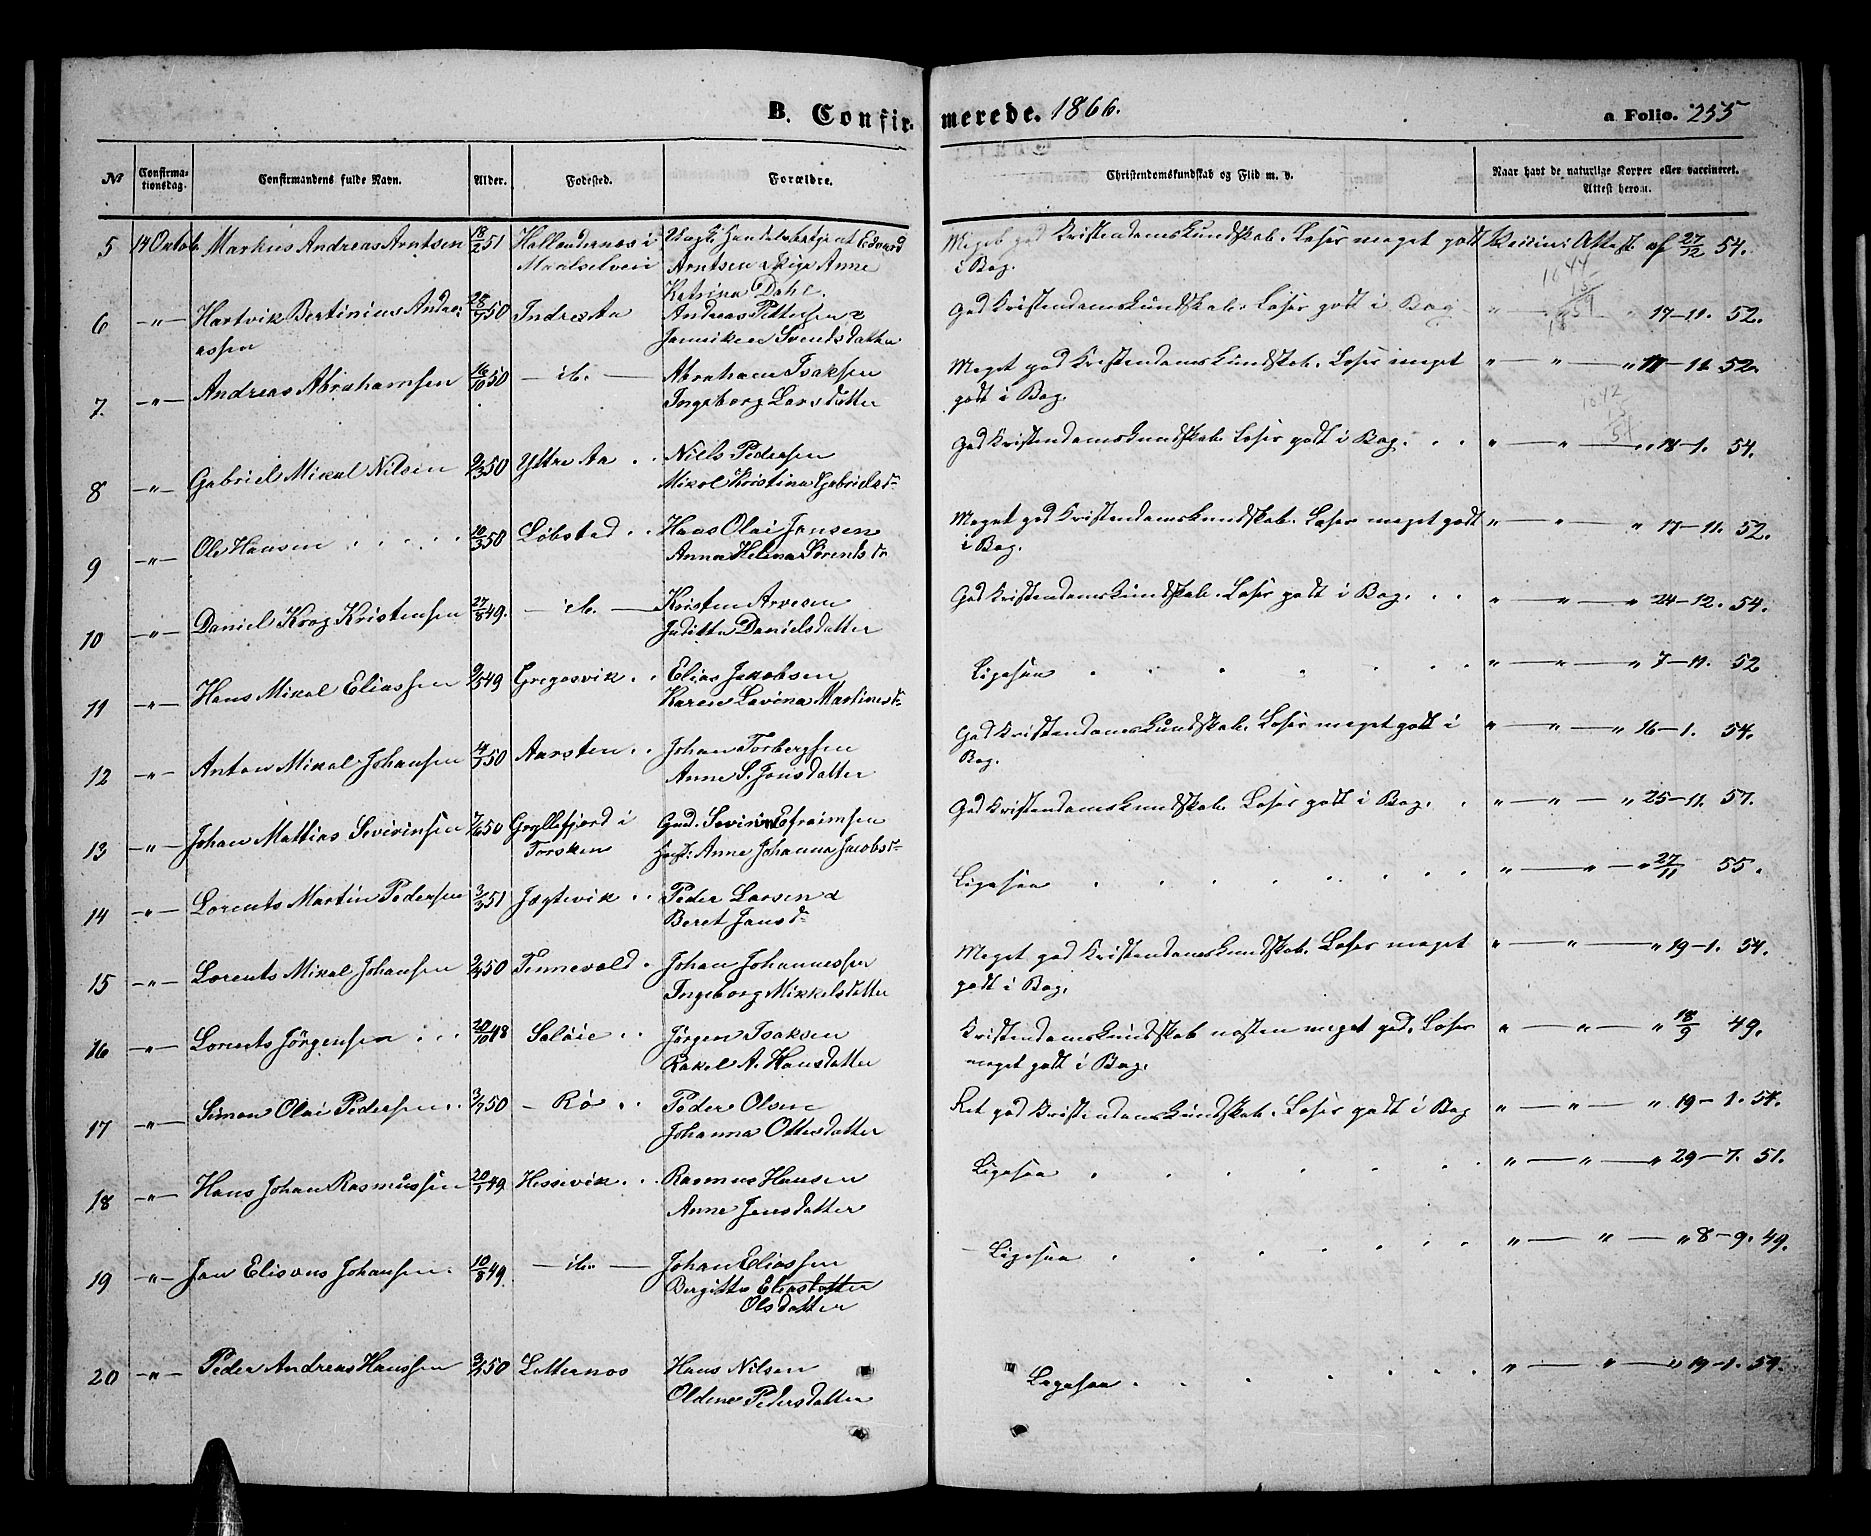 B. Confirmerede. 1866.
a Folio. 255
No
Confirmationsdag.
Confirmandens fulde Navn.
Alder.
Fødested.
Forældre.
Christendomskundskab og Flid m. v.
Naar havt de naturlige Kopper eller vaccineret. Attest herom.
5 14 Octob Markus Andreas Arntsen 18/2 51 Hollendernæs i Uægte Handelsbetjent Edvard Meget god Kristendomskundskab. Læser meget godt Vaccine Attest af 27/12 54.
Maalselven Arntsen Pige Anne i Bog.
Katrina Dahl.
6 -"- Hartvik Bertinius Andre- 50 Indre Aa Andreas Pettersen & God Kristendomskundskab. Læser godt i Bog " — " 17-11. 52.
assen Svendsdatter
7 -"- Andreas Abrahamsen 16/10 50 — ib. — Abraham Isaksen Meget god Kristendomskundskab. Læser meget " — " — " 11. 52.
Ingeborg Larsdatter godt i Bog.
8 -"- Gabriel Mikal Nilsen 9/3 50 Yttre Aa Niels Pedersen God Kristendomskundskab. Læser godt i Bog. " — " — " 18-1. 54.
Mikol Kristina Gabrielsdr
9 -"- Ole Hansen 10/3 50 Løbsted Hans Olai Jensen Meget god Kristendomskundskab. Læser meget godt " — " — " 17-11. 52.
Anna Helena Sørentsdr i Bog.
10 -"- Daniel Krog Kristensen 27/8 49. — ib. — Kristen Arvesen God Kristendomskundskab. Læser godt i Bog. " — " — " 24-12. 54.
Juditta Danielsdatter
11 -"- Hans Mikal Eliassen 9/5 49 Gregosvik Elias Jakobsen Ligesaa " — " — " 7-11. 52
Karen Lavina Martinesdr
12 -"- Anton Mikal Johansen 50 Aarsten Johan Torbergsen God Kristendomskundskab. Læser meget godt i " — " — " 16-1. 54.
Anne S. Jonsdatter Bog.
13 -"- Johan Mattias Sevirinsen 7/6 50 Gryllefjord i Gmd. Severin Efraimsen God Kristendomskundskab. Læser godt i Bog. " — " — " 25-11. 57.
Torsken Anne Johanna Jacobsdr
14 -"- Lorents Martin Pedersen 3/3 51 Jægtevik Peder Larsen & Ligesaa " — " — " 27/11 55.
Beret Jansdr
15 -"- Lorents Mikal Johansen 50 Tennevold Johan Johannessen Meget god Kristendomskundskab. Læser meget " — " — " 19-1. 54.
Ingeborg Mikkelsdatter godt i Bog.
16 -"- Lorents Jörgensen 20/10 48 Saløie Jørgen Isaksen Kristendomskundskab næsten meget god. Læser " — " — " 18/9 49.
Rakel A. Hansdatter meget godt i Bog.
17 -"- Simon Olai Pedersen 50 — Rø Peder Olsen Ret god Kristendomskundskab. Læser godt i Bog " — " — " 19-1. 54.
Johanna Ottesdatter
18 -"- Hans Johan Rasmussen 20/1 49 Hessevik Rasmus Hansen Ligesaa " — " — " 29-7. 51.
Anne Jensdatter
19 -"- Jan Elisæus Johansen 10/8 49. — ib. — Johan Eliassen Ligesaa " — " — " 8-9. 49.
Bergitta Eliasdatter
Olsdatter
20 -"- Peder Andreas Hanssen 50 Letternes Hans Nilsen Ligesaa " — " — " 19-1. 54.
Oldine Pedersdatter